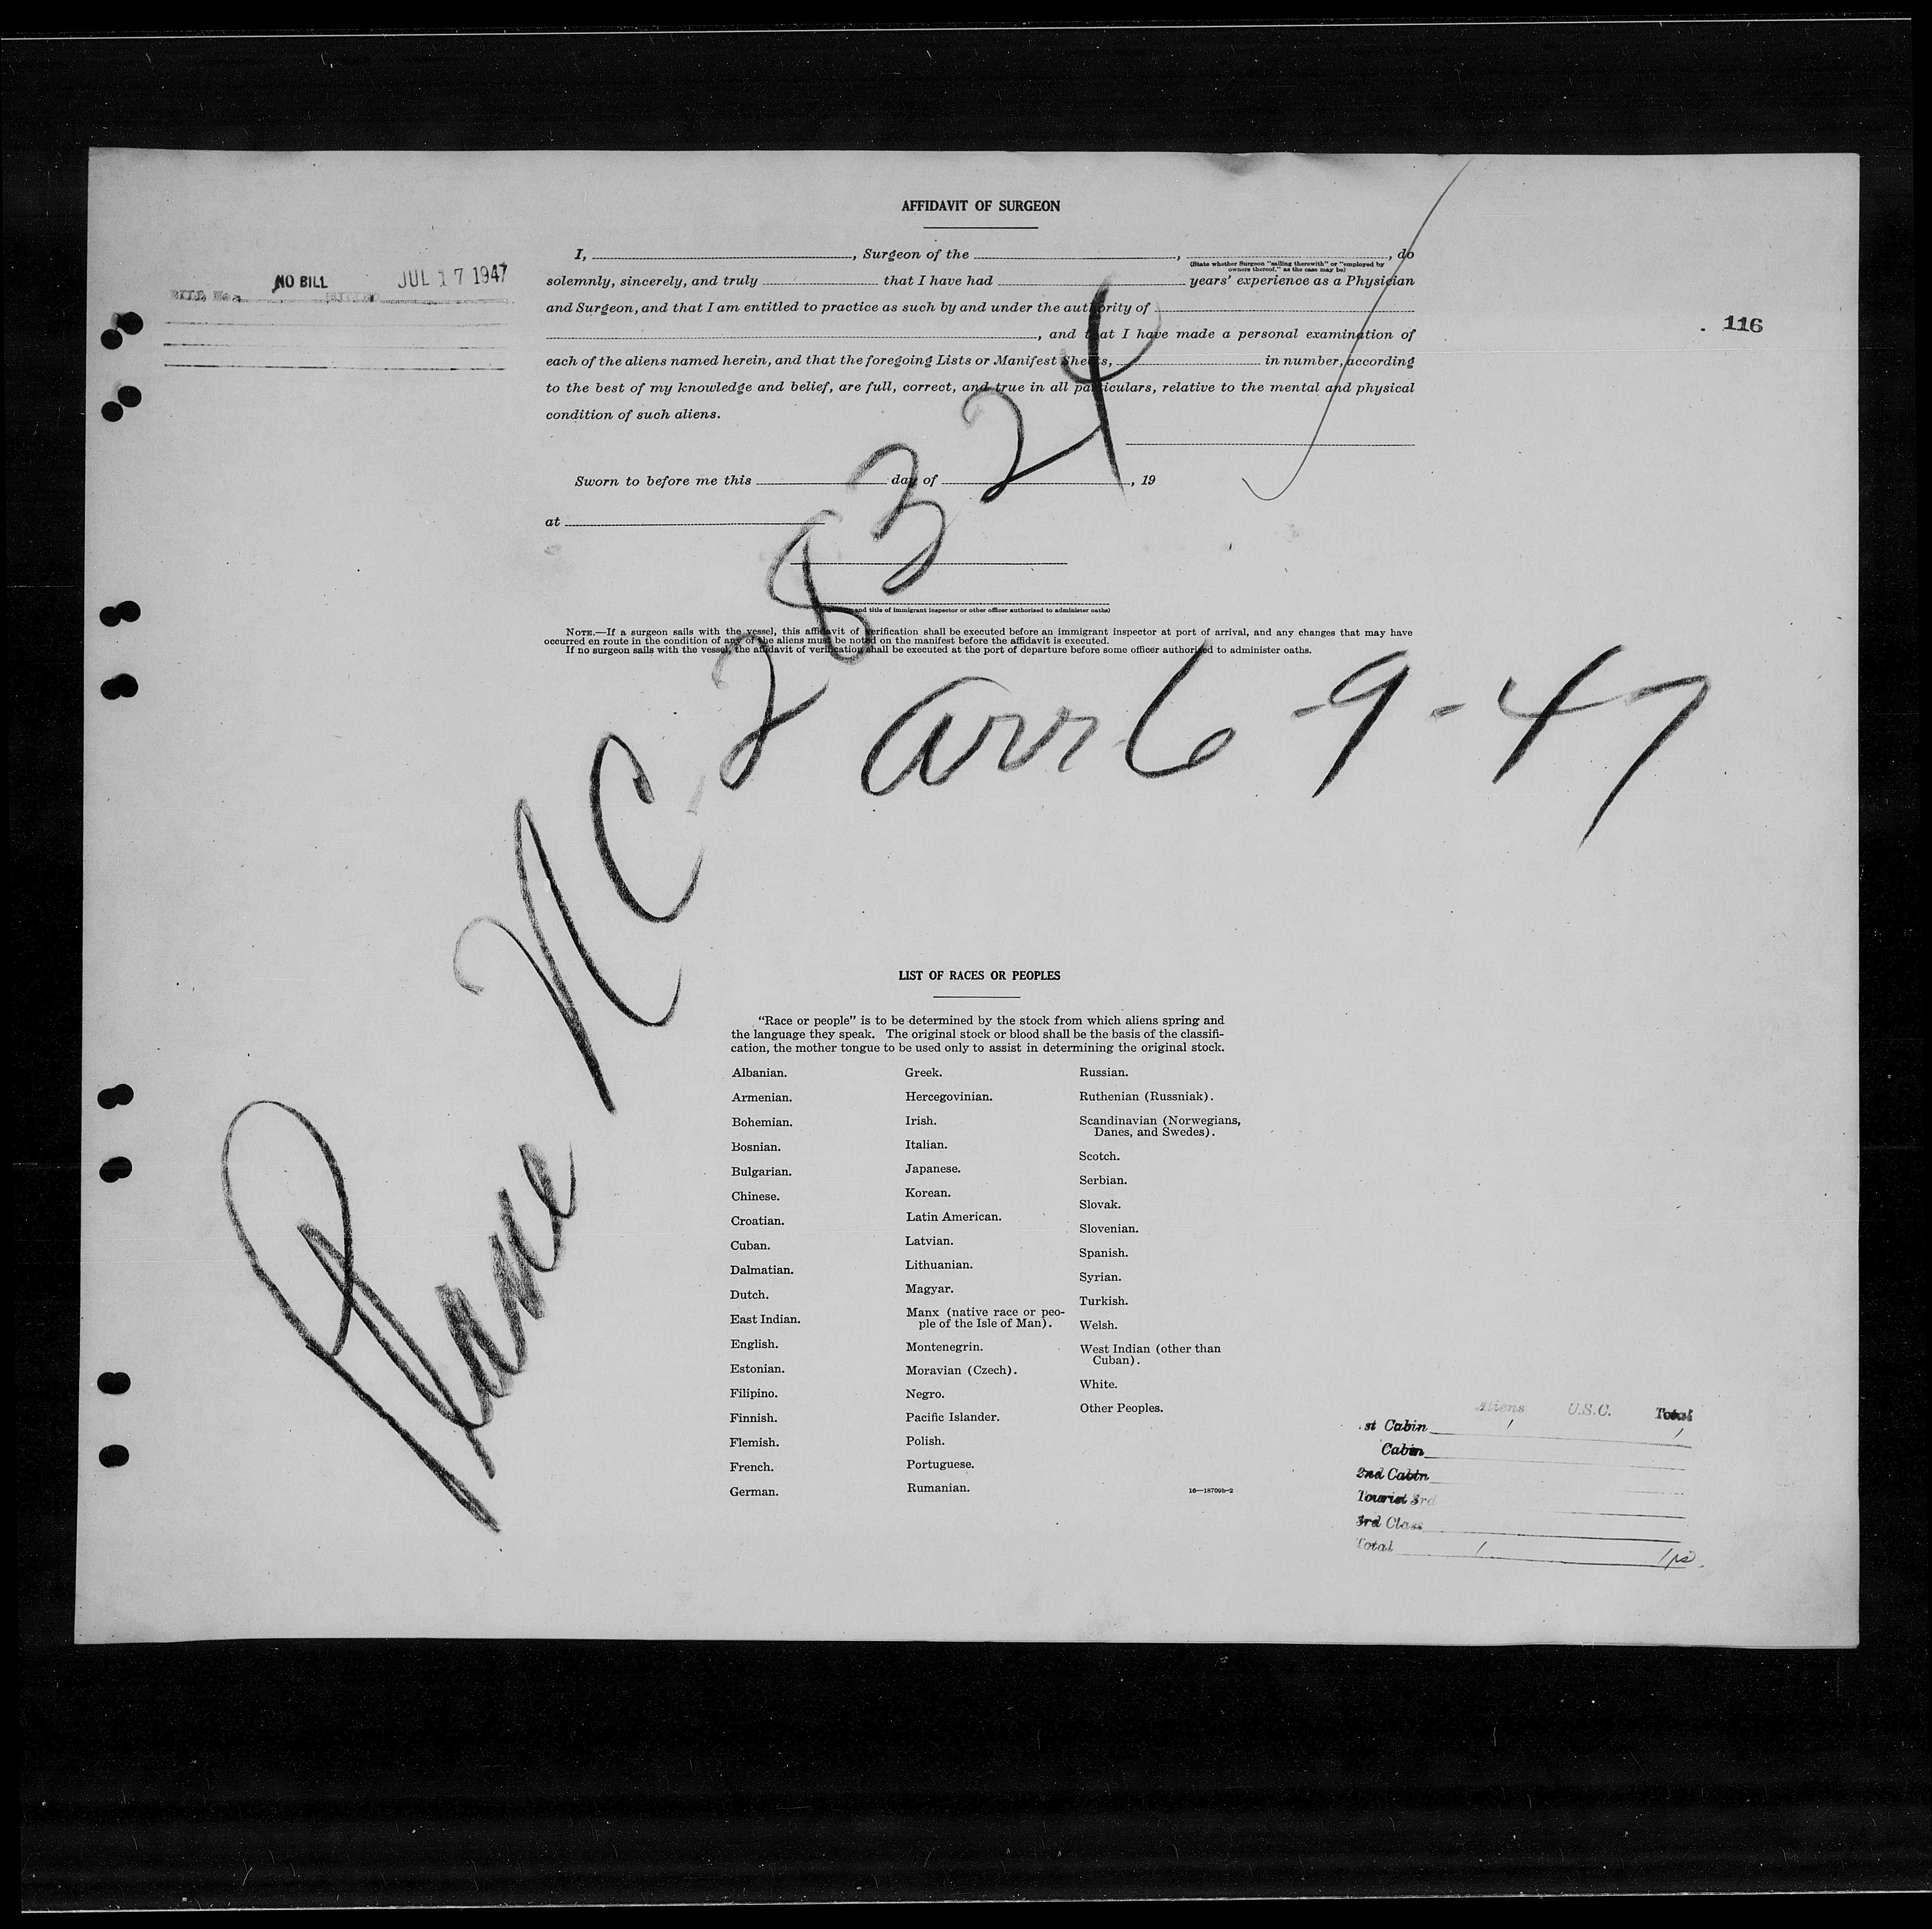 AFFIDAVIT OF SURGEON
I, , Surgeon of the , , do
(State whether Surgeon "sailing therewith" or "employed by
owners thereof," as the case may be)
solemnly, sincerely, and truly that I have had years' experience as a Physician
and Surgeon, and that I am entitled to practice as such by and under the authority of
, and that I have made a personal examination of
each of the aliens named herein, and that the foregoing Lists or Manifest Sheets, in number, according
to the best of my knowledge and belief, are full, correct, and true in all particulars, relative to the mental and physical
condition of such aliens.
NO BILL JUL 17 1947
116
Sworn to before me this day of , 19
at
and title of immigrant inspector or other officer authorized to administer oaths)
NOTE.—If a surgeon sails with the vessel, this affidavit of verification shall be executed before an immigrant inspector at port of arrival, and any changes that may have
occurred en route in the condition of any of the aliens must be noted on the manifest before the affidavit is executed.
If no surgeon sails with the vessel, the affidavit of verification shall be executed at the port of departure before some officer authorized to administer oaths.
Plane NC 28324
arr 6-9-47
LIST OF RACES OR PEOPLES
"Race or people" is to be determined by the stock from which aliens spring and
the language they speak. The original stock or blood shall be the basis of the classifi-
cation, the mother tongue to be used only to assist in determining the original stock.
Albanian.
Armenian.
Bohemian.
Bosnian.
Bulgarian.
Chinese.
Croatian.
Cuban.
Dalmatian.
Dutch.
East Indian.
English.
Estonian.
Filipino.
Finnish.
Flemish.
French.
German.
Greek.
Hercegovinian.
Irish.
Italian.
Japanese.
Korean.
Latin American.
Latvian.
Lithuanian.
Magyar.
Manx (native race or peo-
ple of the Isle of Man).
Montenegrin.
Moravian (Czech).
Negro.
Pacific Islander.
Polish.
Portuguese.
Rumanian.
Russian.
Ruthenian (Russniak).
Scandinavian (Norwegians,
Danes, and Swedes).
Scotch.
Serbian.
Slovak.
Slovenian.
Spanish.
Syrian.
Turkish.
Welsh.
West Indian (other than
Cuban).
White.
Other Peoples.
16—18709b-2
Aliens U.S.C. Total
st Cabin 1 1
Cabin
2nd Cabin
Tourist 3rd
3rd Class
Total 1 1